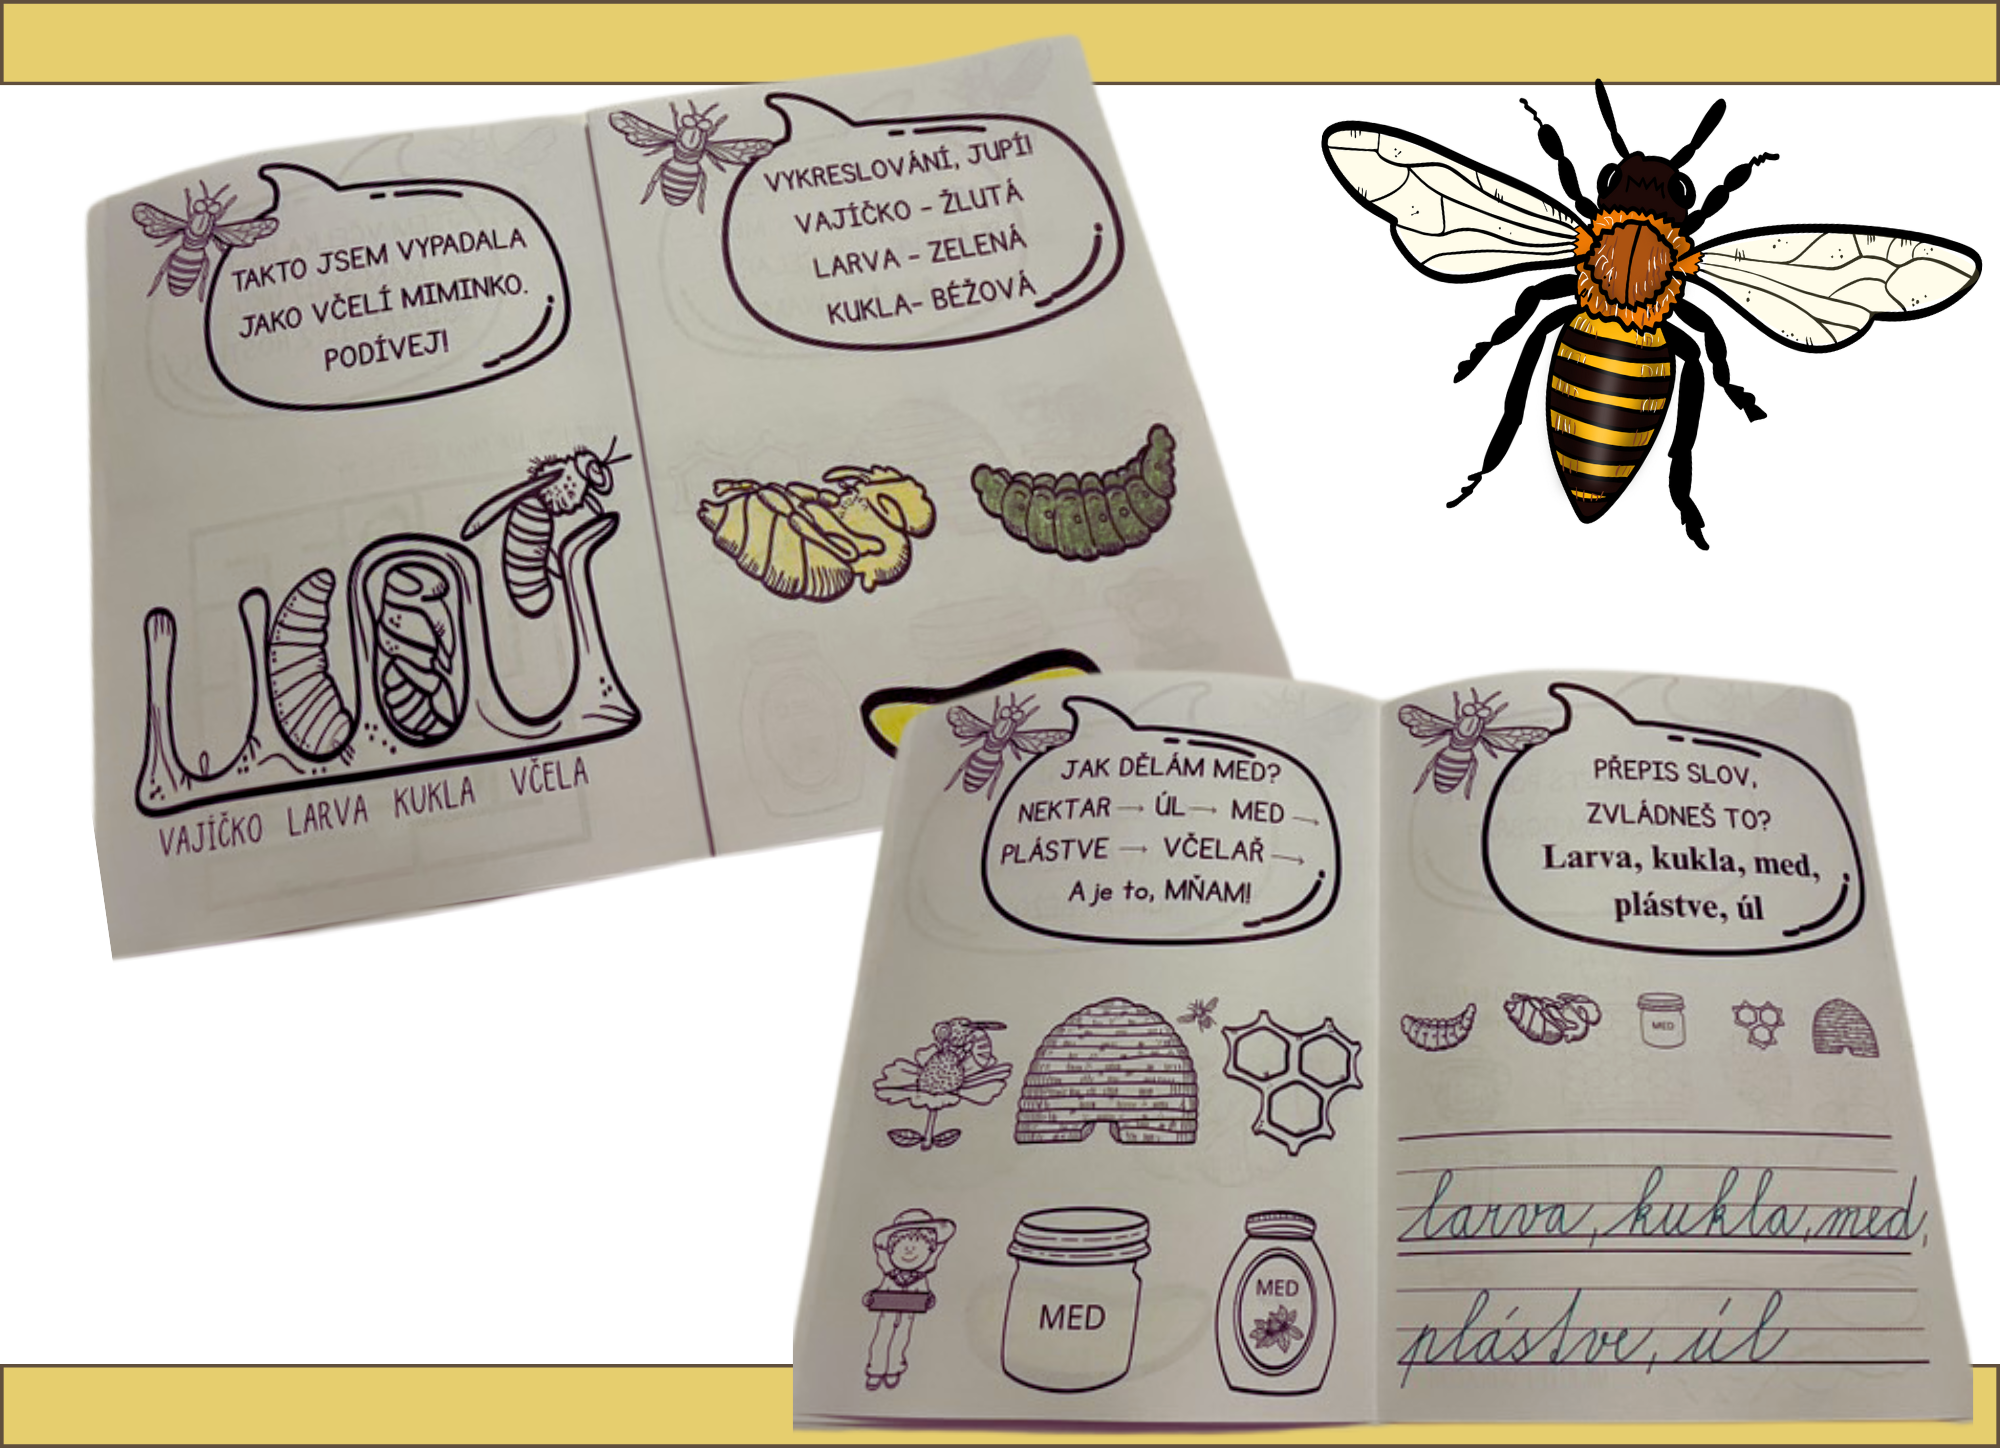 TAKTO JSEM VYPADALA
JAKO VČELÍ MIMINKO.
PODÍVEJ!
VAJÍČKO LARVA KUKLA VČELA
VYKRESLOVÁNÍ, JUPÍ!
VAJÍČKO - ŽLUTÁ
LARVA - ZELENÁ
KUKLA- BÉŽOVÁ
JAK DĚLÁM MED?
NEKTAR → ÚL → MED →
PLÁSTVE → VČELAŘ →
A je to, MŇAM!
MED
MED
PŘEPIS SLOV,
ZVLÁDNEŠ TO?
Larva, kukla, med,
plástve, úl
MED
larva, kukla, med,
plástve, úl